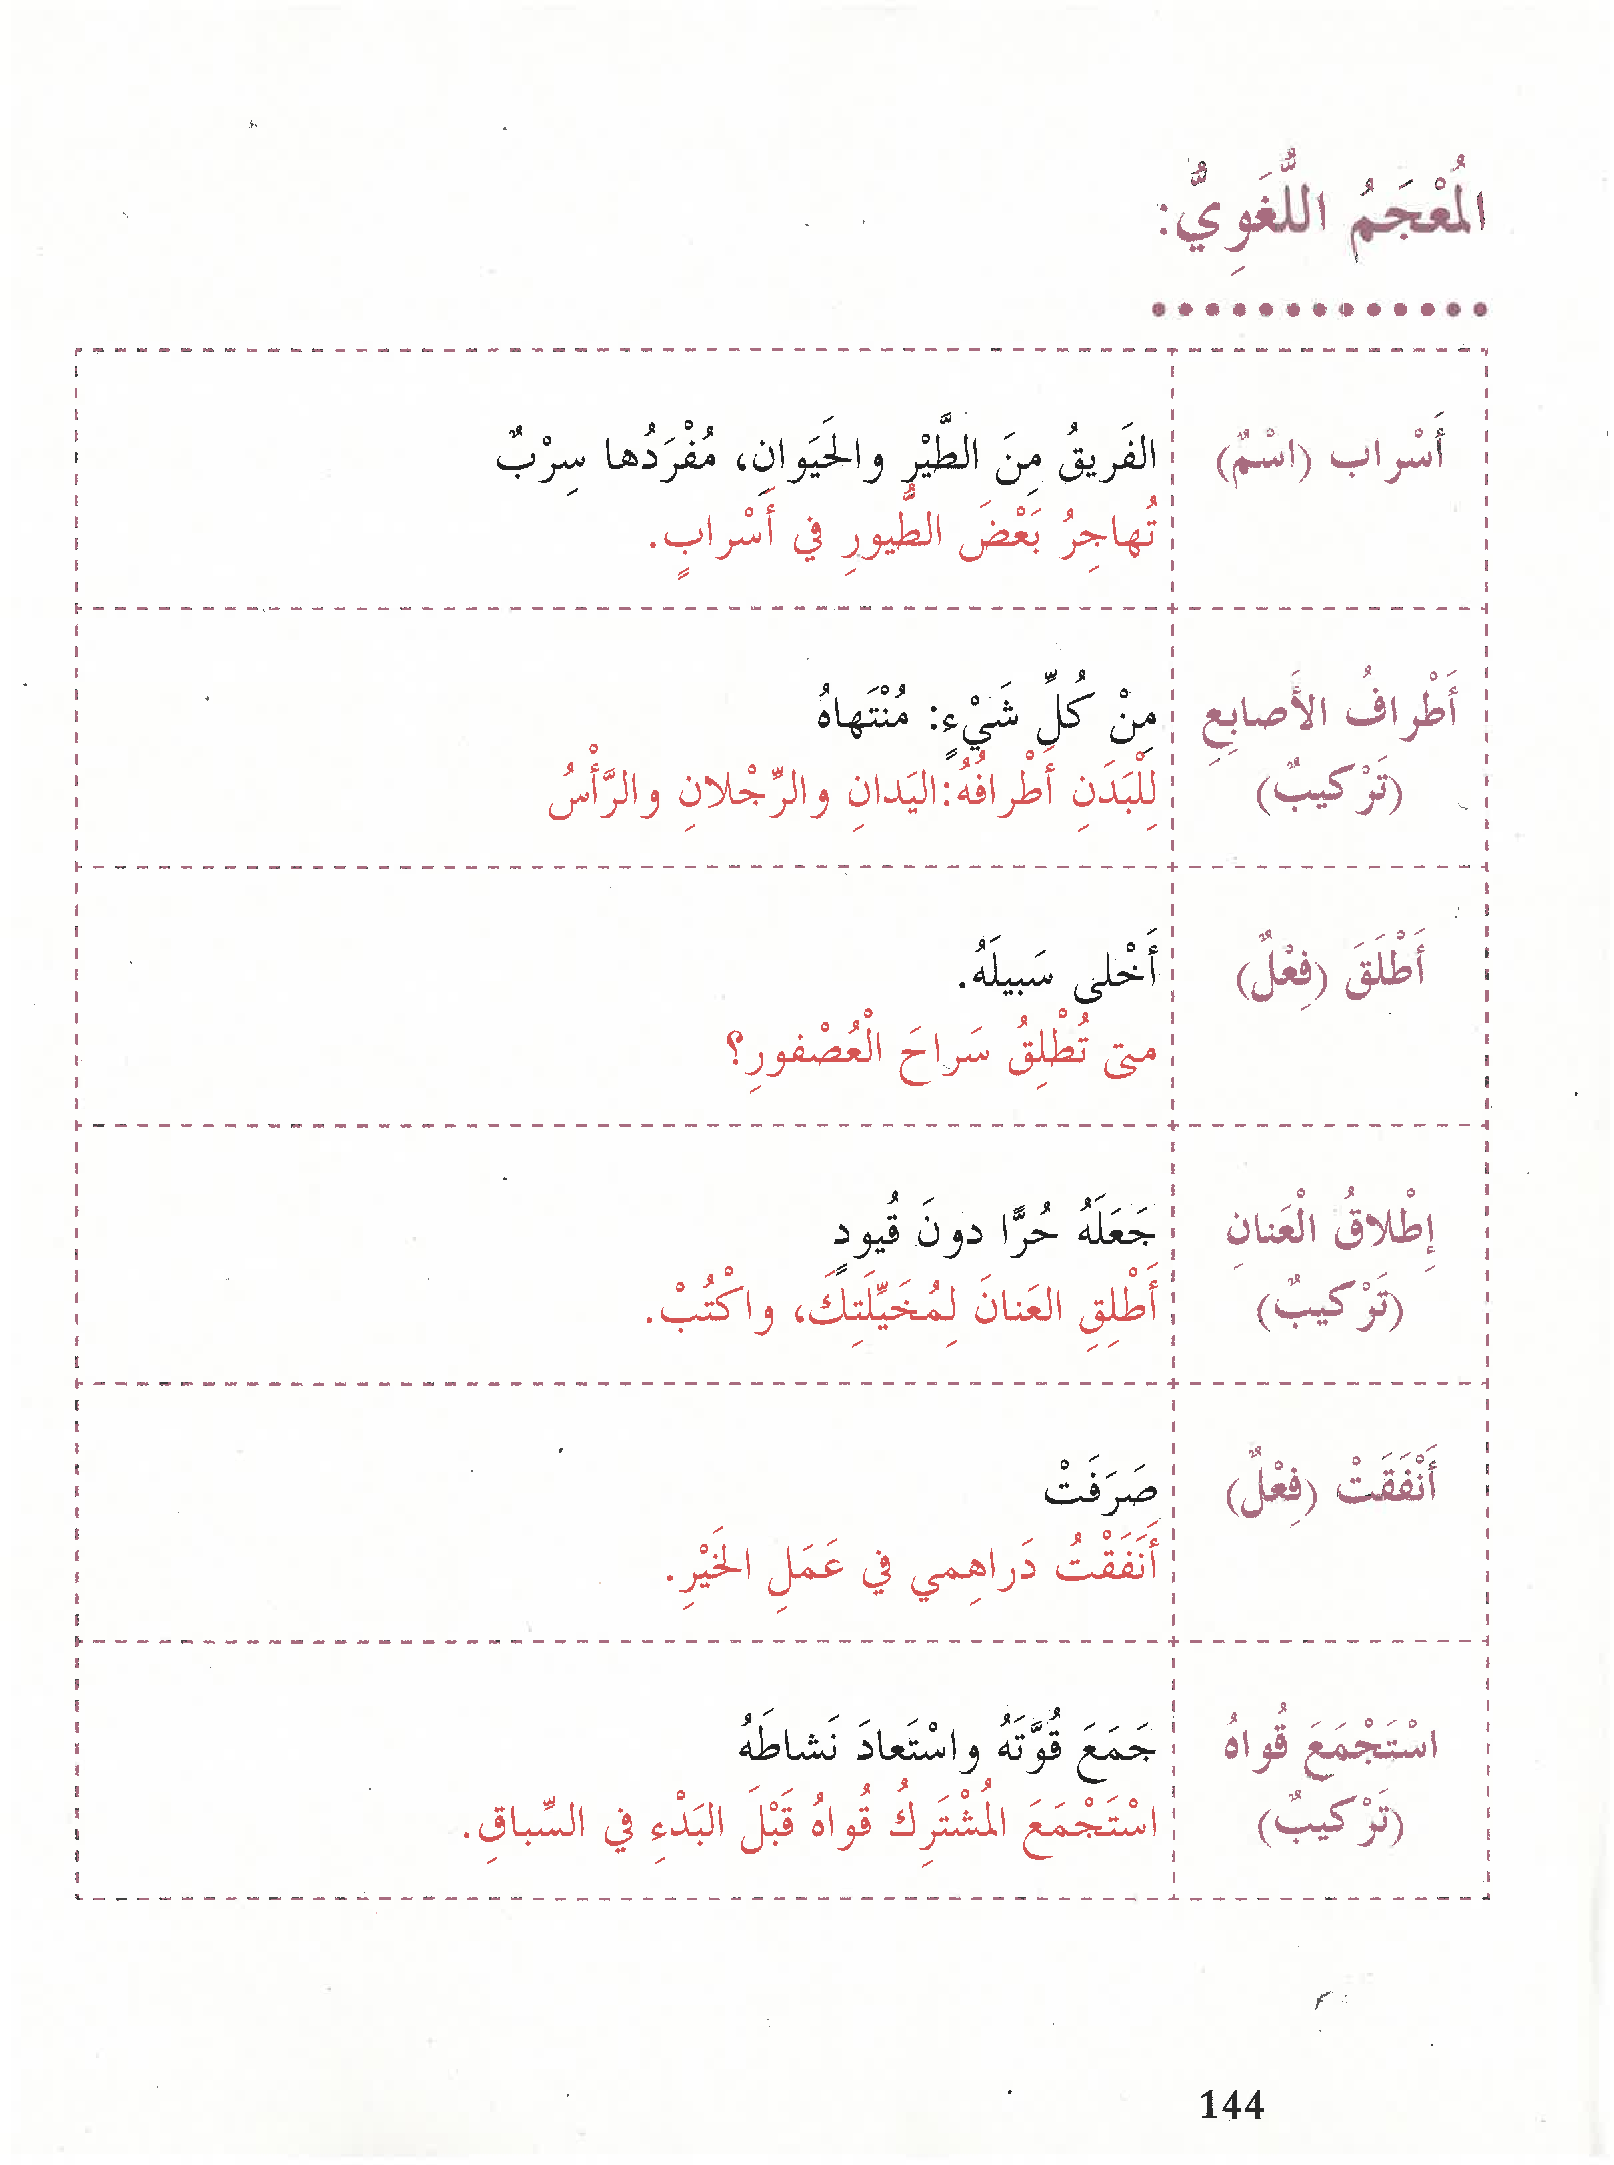 المُعْجَمُ اللُّغَوِيُّ:
أَسْراب (اسْمٌ)
الفَريقُ مِنَ الطَّيْرِ والحَيَوانِ، مُفْرَدُها سِرْبٌ
تُهاجِرُ بَعْضَ الطُّيورِ في أَسْرابٍ.
أَطْرافُ الأَصابِعِ
(تَرْكيبٌ)
مِنْ كُلِّ شَيْءٍ: مُنْتَهاهُ
لِلْبَدَنِ أَطْرافُهُ:اليَدانِ والرِّجْلانِ والرَّأْسُ
أَطْلَقَ (فِعْلٌ)
أَخْلى سَبيلَهُ.
متى تُطْلِقُ سَراحَ الْعُصْفورِ؟
إِطْلاقُ الْعَنانِ
(تَرْكيبٌ)
جَعَلَهُ حُرًّا دونَ قُيودٍ
أَطْلِقِ العَنانَ لِمُخَيِّلَتِكَ، واكْتُبْ.
أَنْفَقَتْ (فِعْلٌ)
صَرَفَتْ
أَنَفَقْتُ دَراهِمي في عَمَلِ الخَيْرِ.
اسْتَجْمَعَ قُواهُ
(تَرْكيبٌ)
جَمَعَ قُوَّتَهُ واسْتَعادَ نَشاطَهُ
اسْتَجْمَعَ المُشْتَرِكُ قُواهُ قَبْلَ البَدْءِ في السِّباقِ.
144